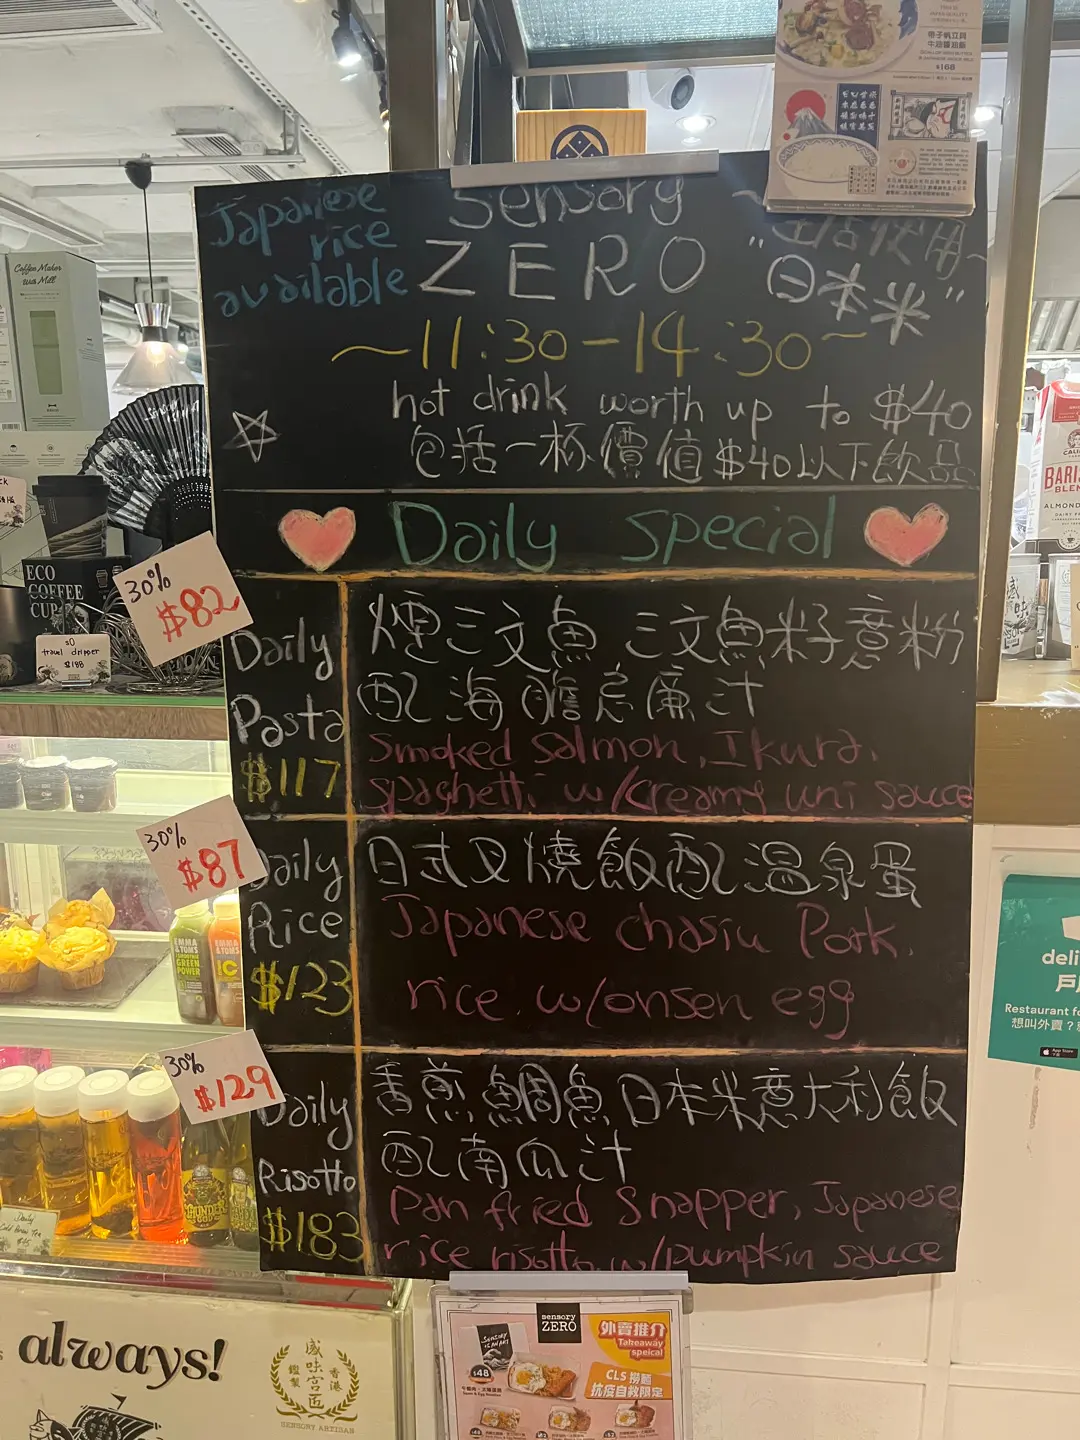 帶子病立貝
$168
Japanese
rice
available
Sensory
ZERO
~ 生活使用 ~
"日本米"
~11:30-14:30~
hot drink worth up to $40
包括一杯價值$40以下飲品
Daily special
30%
$82
Daily
Pasta
$117
煙三文魚 三文魚籽意粉
配海膽忌廉汁
Smoked salmon, Ikura,
spaghetti w/creamy uni sauce
30%
$87
Daily
Rice
$123
日式叉燒飯配溫泉蛋
Japanese chasiu Pork
rice w/onsen egg
30%
$129
Daily
Risotto
$183
香煎鯛魚日本米意大利飯
配南瓜汁
Pan fried Snapper, Japanese
rice risotto w/pumpkin sauce
Coffee Maker
with Mill
ECO
COFFEE
CUP
travel dripper
$188
EMMA
&TOMS
GREEN
POWER
EMMA
&TOMS
Daily
Cold Brew Tea
always!
感味宮匠
香港
監製
SENSORY ARTISAN
sensory
ZERO
外賣推介
Takeaway
speical
CLS 撈麵
抗疫自救限定
$48
deli
戶
Restaurant fo
想叫外賣?
App Store
BARIS
BLEN
ALMOND